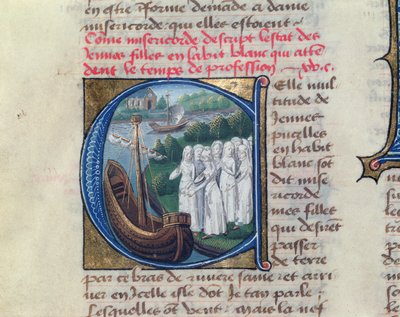 en ql̃tre fforme demade a dame
misericorde qui elles estoient.
Cõme misericorde descript lestat des
Jennes filles en habit blanc qui attē
dent le temps de profession .
Celle mul
titude de
Jennes
pucelles
en habit
blanc sõt
dit mise
ricorde
mes filles
qui desirẽt
passer
de terre
par ce bras de riviere saine et arri
ver en Icelle isle dõt Je tay parle ;
Lesquelles õt vent . Mais la nef